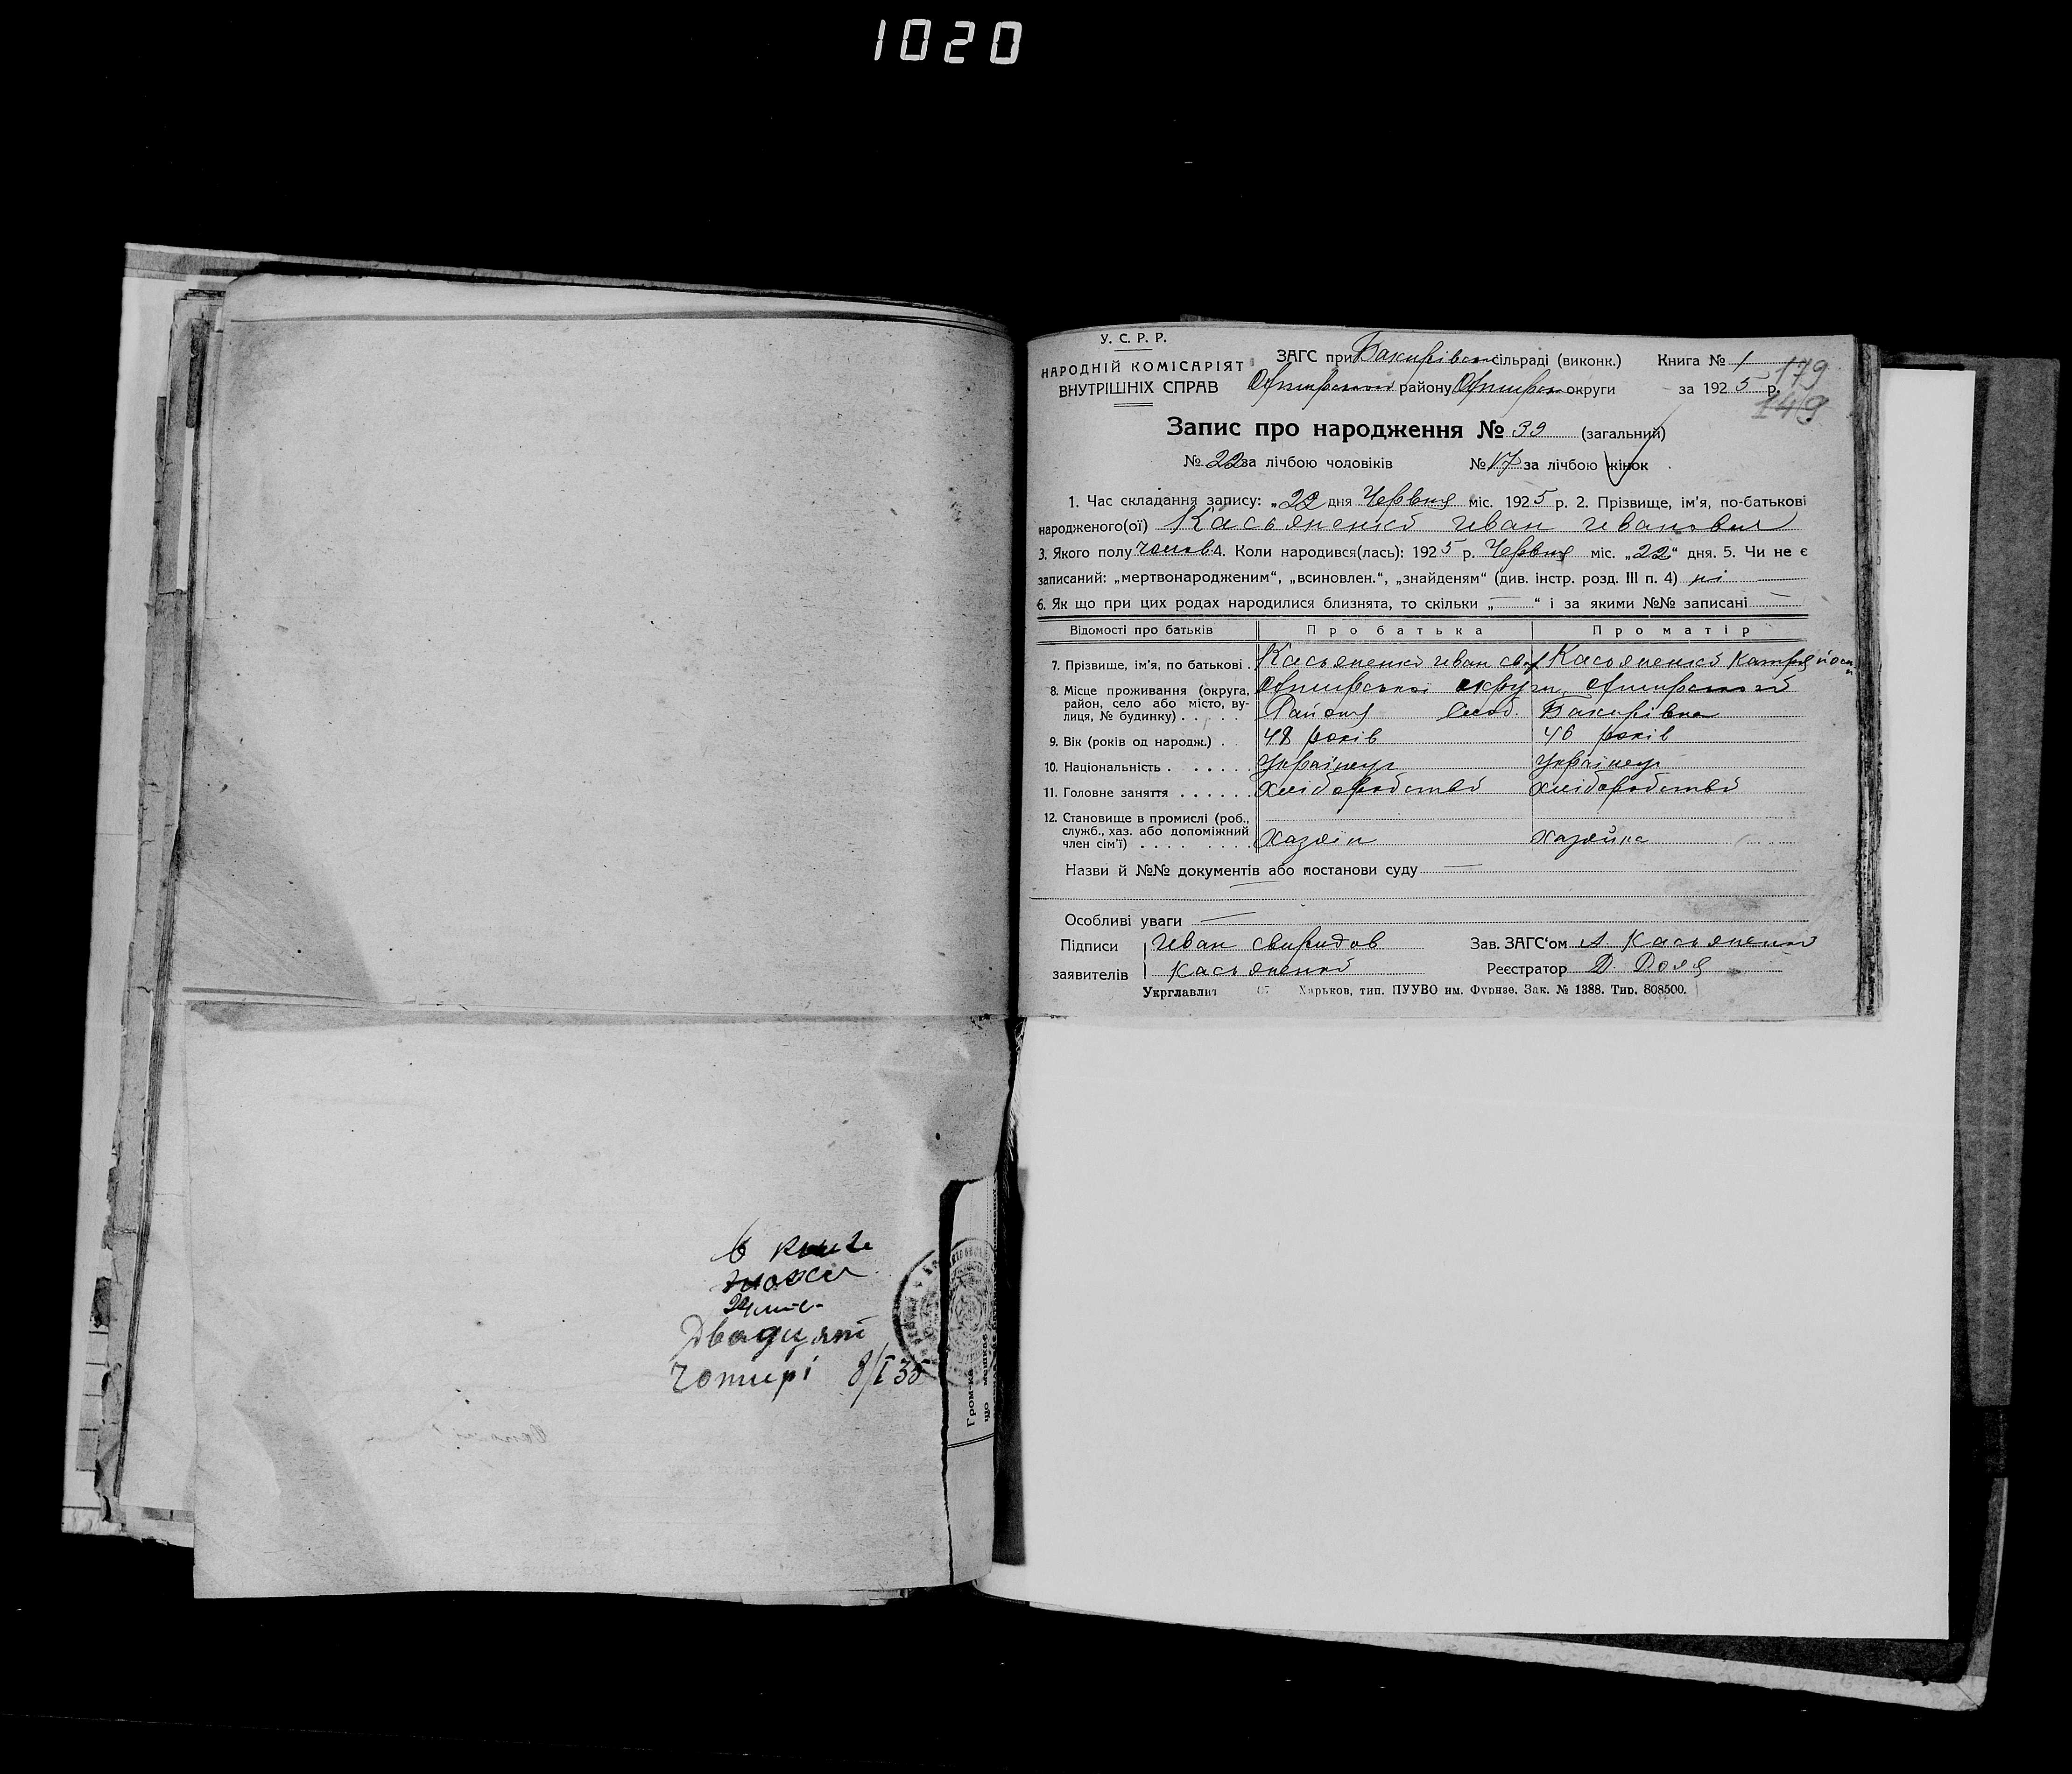 1020
В книзе
24 лист.
Двадцят
Чотирі 8/I 35
Гром-ка
що мешкає
У. С. Р. Р.
НАРОДНІЙ КОМІСАРІЯТ
ВНУТРІШНІХ СПРАВ
ЗАГС при Бакирівск сільраді (виконк.) Книга № 1
179
Охтирського району Охтирск округи за 1925 р.
149
Запис про народження № 39 (загальний)
№ 22 за лічбою чоловіків № 17 за лічбою жінок
1. Час складання запису: „22 дня Червня міс. 1925 р. 2. Прізвище, ім'я, по-батькові
народженого(ої) Касьяненко Иван Иванович
3. Якого полу чолов. 4. Коли народився(лась): 1925 р. Червня міс. „22“ дня. 5. Чи не є
записаний: „мертвонародженим“, „всиновлен.“, „знайденям“ (див. інстр. розд. III п. 4) ні
6. Як що при цих родах народилися близнята, то скільки „—“ і за якими №№ записані —
Відомості про батьків Про батька Про матір
7. Прізвище, ім'я, по батькові . Касьяненко Иван Свир Касьяненко Катря Йоси
8. Місце проживання (округа, район, село або місто, вулиця, № будинку) . . . . . Охтирської округи, Охтирського
Району Слоб. Бакирівка
9. Вік (років од народж.) . . 48 років 46 років
10. Національність . . . . . . Українец Українец
11. Головне заняття . . . . . . Хліборобство Хліборобство
12. Становище в промислі (роб., служб., хаз. або допоміжний член сім'ї) . . . . . . . . Хазяїн Хазяйка
Назви й №№ документів або постанови суду —
Особливі уваги —
Підписи Иван Свиридов Зав. ЗАГС'ом А. Касьяненко
заявителів Касьяненко Реєстратор Д.
Укрглавлит 67 Харьков, тип. ПУУВО им. Фрунзе. Зак. № 1388. Тир. 808500.